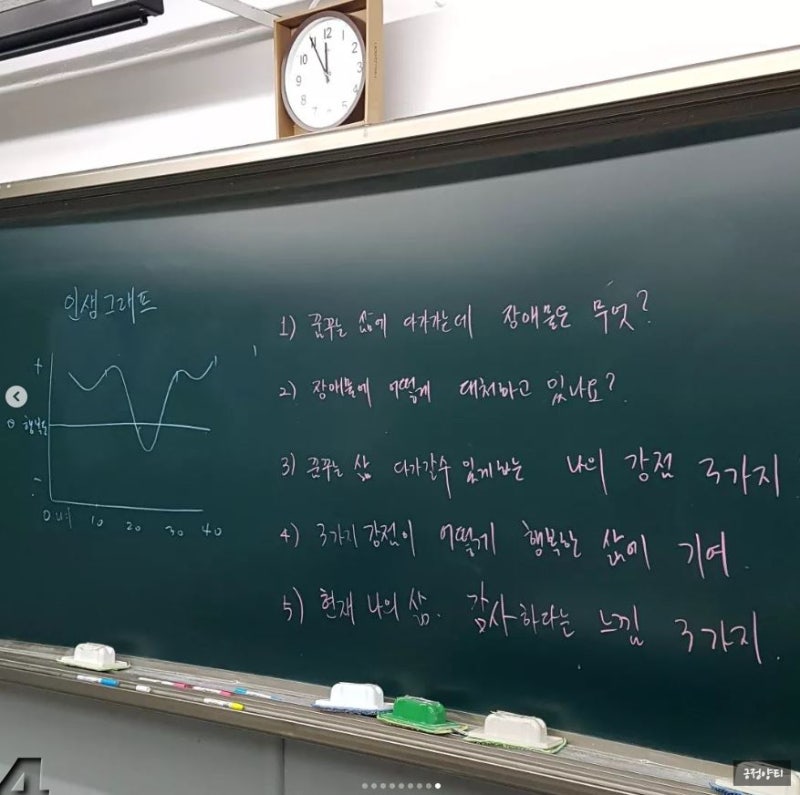 12
1
2
3
4
5
7
8
9
10
11
인생그래프
+
0 행복
-
0 10 20 30 40
1) 꿈꾸는 삶에 다가가는데 장애물은 무엇?
2) 장애물에 어떻게 대처하고 있나요?
3) 꿈꾸는 삶 다가갈수 있게하는 나의 강점 3가지
4) 3가지 강점이 어떻게 행복한 삶에 기여.
5) 현재 나의 삶. 감사하다는 느낌 3가지.
4
긍정양티